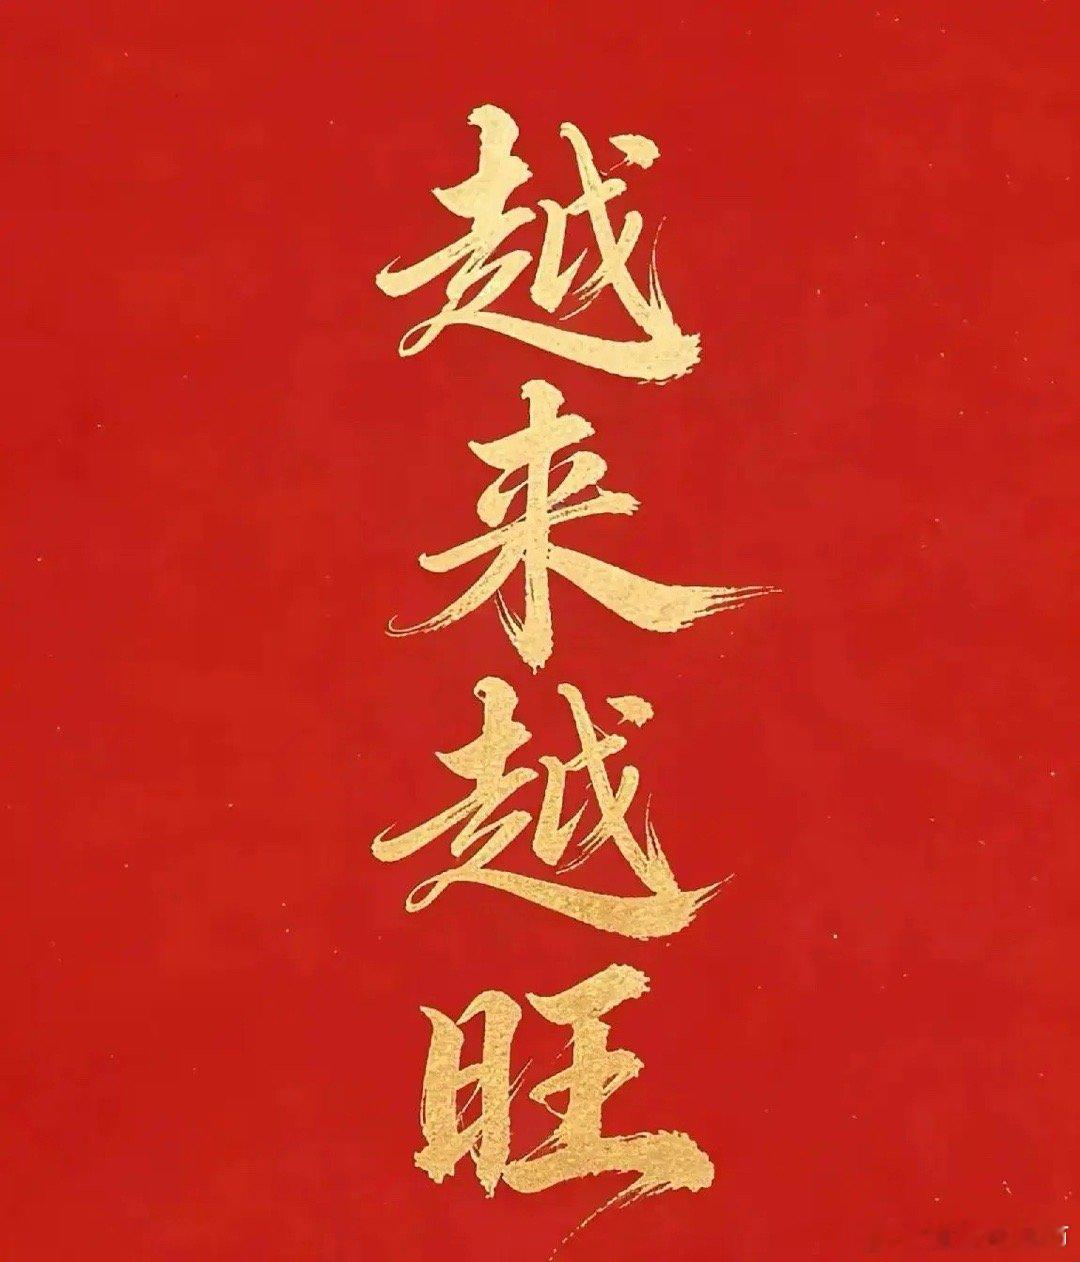 越来越旺